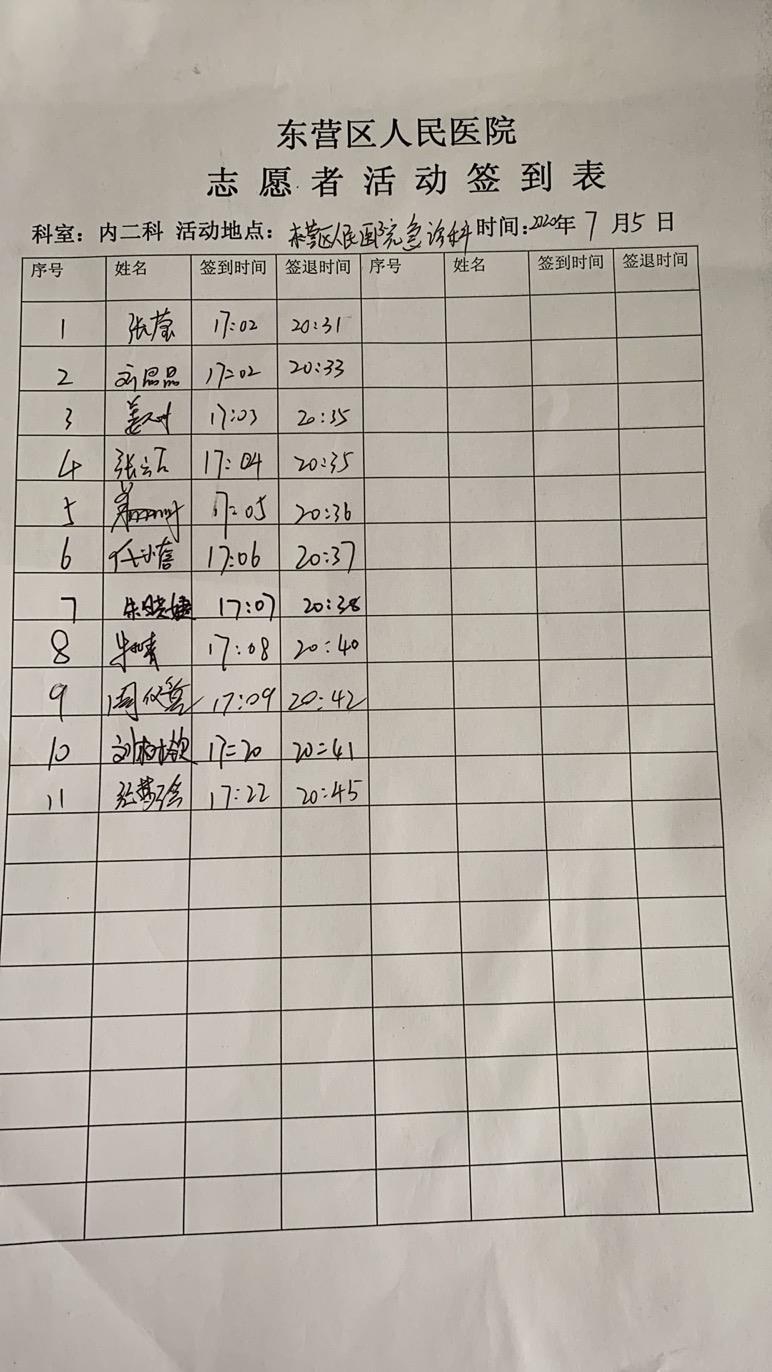 东营区人民医院
志愿者活动签到表
科室：内二科 活动地点：东营区人民医院急诊科 时间：2020年7月5日
序号 姓名 签到时间 签退时间 序号 姓名 签到时间 签退时间
1 张莹 17:02 20:31
2 刘思思 17:02 20:33
3 17:03 20:35
4 17:04 20:35
5 17:05 20:36
6 17:06 20:37
7 朱晓婕 17:07 20:38
8 17:08 20:40
9 17:09 20:42
10 17:20 20:41
11 17:22 20:45